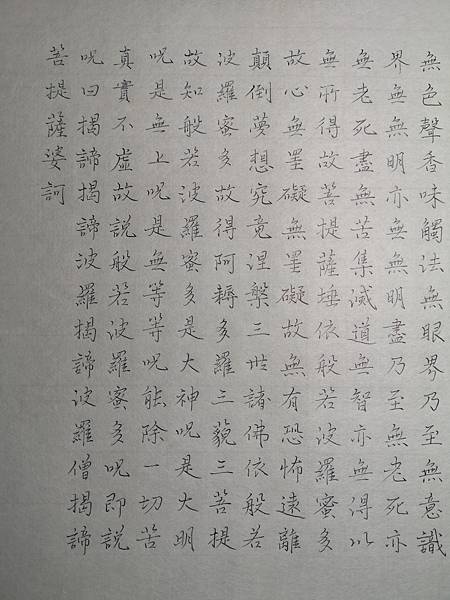 無色聲香味觸法無眼界乃至無意識
界無無明亦無無明盡乃至無老死亦
無老死盡無苦集滅道無智亦無得以
無所得故菩提薩埵依般若波羅蜜多
故心無罣礙無罣礙故無有恐怖遠離
顛倒夢想究竟涅槃三世諸佛依般若
波羅蜜多故得阿耨多羅三藐三菩提
故知般若波羅蜜多是大神呪是大明
呪是無上呪是無等等呪能除一切苦
真實不虛故說般若波羅蜜多呪即說
呪曰揭諦揭諦波羅揭諦波羅僧揭諦
菩提薩婆訶